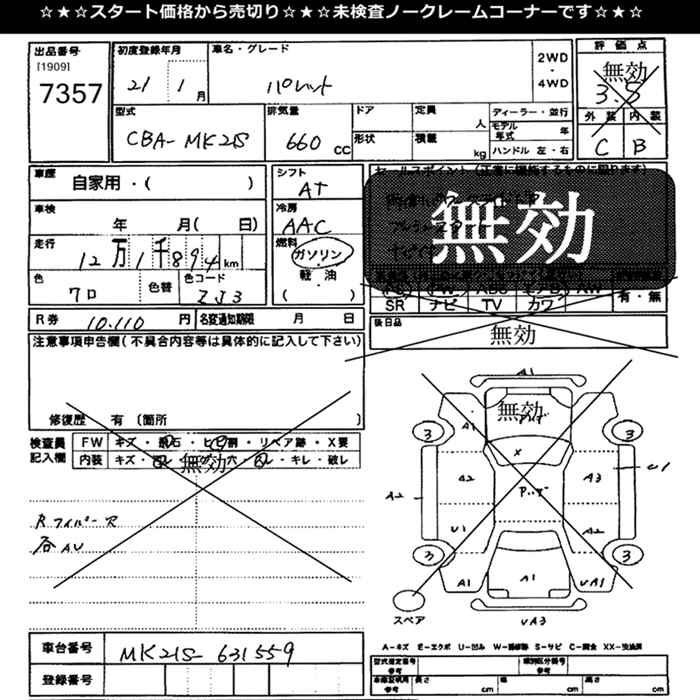 ☆★☆スタート価格から売切り☆★☆未検査ノークレームコーナーです☆★☆
出品番号 初度登録年月 車名・グレード 評価点
[1909]
7357 21 1月 パレット 2WD・4WD 無効 3.5
型式 排気量 ドア 定員 人 ディーラー・並行 外装 内装
CBA-MK21S 660cc 形状 積載 kg モデル年式 年 ハンドル 左・右 C B
車歴 自家用・( ) シフト AT セールスポイント(正常に機能するものに限ります)
車検 年 月( 日) 冷房 AAC 無効
走行 12万1千894km 燃料 ガソリン 軽油・( )
色 クロ 色替 色コード ZJ3
SR ナビ TV カワ 有・無
R券 10.110円 名変通知期限 月 日 後日品 無効
注意事項申告欄(不具合内容等は具体的に記入して下さい)
修復歴 有 〔箇所 〕
検査員記入欄 FW キズ・飛石・ヒビ割・リペア跡・X要
内装 キズ 無効 穴 キレ・破レ
各AU
A1
無効
A1
3 3
X
A2 A3 U1
A2
U1 A2
3 3
A1 A1 UA1
スペア UA3
A-キズ E-エクボ U-凹み W-補修跡 S-サビ C-腐食 XX-交換済
車台番号 MK21S-631559
登録番号
型式指定番号 参考 類別区分番号 参考
車検証明用 参考 長さ cm 幅 cm 高さ cm